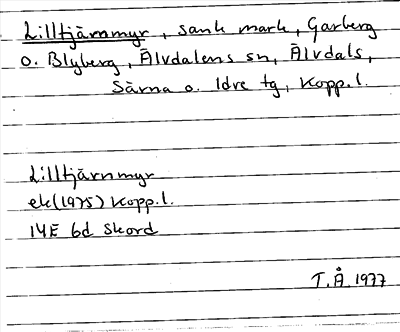 Lilltjärnmyr, sank mark, Garberg
o. Blyberg, Älvdalens sn, Älvdals,
Särna o. Idre tg, Kopp.l.
Lilltjärnmyr
ek(1975) Kopp.l.
14E 6d Skord
T.Å. 1977